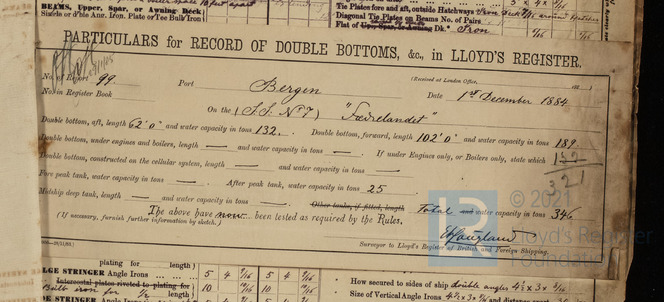 BEAMS, Upper, Spar, or Awning Deck
Stringer or Tie Plate
Tie Plates fore and aft, outside Hatchways
Diagonal Tie Plates on Beams No. of Pairs
Flat of Up., Spar, or Awning Dk. Iron
PARTICULARS for RECORD OF DOUBLE BOTTOMS, &c., in LLOYD'S REGISTER.
No. of Report 99 Port Bergen (Received at London Office, 188 )
No. in Register Book Date 1st December 1884
On the (S.S. No 7) "Fædrelandet"
Double bottom, aft, length 62'0" and water capacity in tons 132. Double bottom, forward, length 102'0" and water capacity in tons 189
Double bottom, under engines and boilers, length — and water capacity in tons — If under Engines only, or Boilers only, state which 132
Double bottom, constructed on the cellular system, length — and water capacity in tons — 321
Fore peak tank, water capacity in tons — After peak tank, water capacity in tons 25
Midship deep tank, length — and water capacity in tons — Other tanks, if fitted, length Total and water capacity in tons 346
The above have now been tested as required by the Rules.
(If necessary, furnish further information by sketch.)
Surveyor to Lloyd's Register of British and Foreign Shipping.
© 2021
Lloyd's Register
Foundation
plating for length)
STRINGER Angle Irons 5 4 5 4
Intercostal plates riveted to plating for length) 10 10
Bulb iron for 1/2 length)
STRINGER Angle Irons
How secured to sides of ship double angles 4½ x 3 x
Size of Vertical Angle Irons 4½ x 3 x